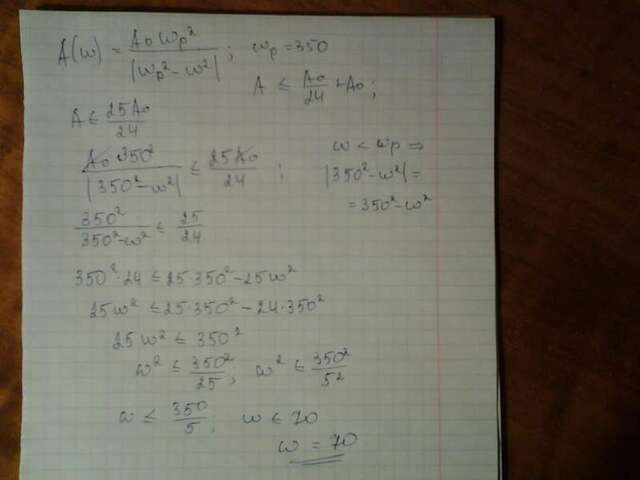 A(ω) = A₀ωₚ² / |ωₚ² − ω²| ; ωₚ = 350
A ≤ A₀/24 + A₀ ;
A ≤ 25A₀/24
A₀ 350² / |350² − ω²| ≤ 25A₀/24 ; ω < ωₚ ⇒
|350² − ω²| =
= 350² − ω²
350² / 350² − ω² ≤ 25/24
350² · 24 ≤ 25·350² − 25ω²
25ω² ≤ 25·350² − 24·350²
25ω² ≤ 350²
ω² ≤ 350²/25 ; ω² ≤ 350²/5²
ω ≤ 350/5 ; ω ≤ 70
ω = 70